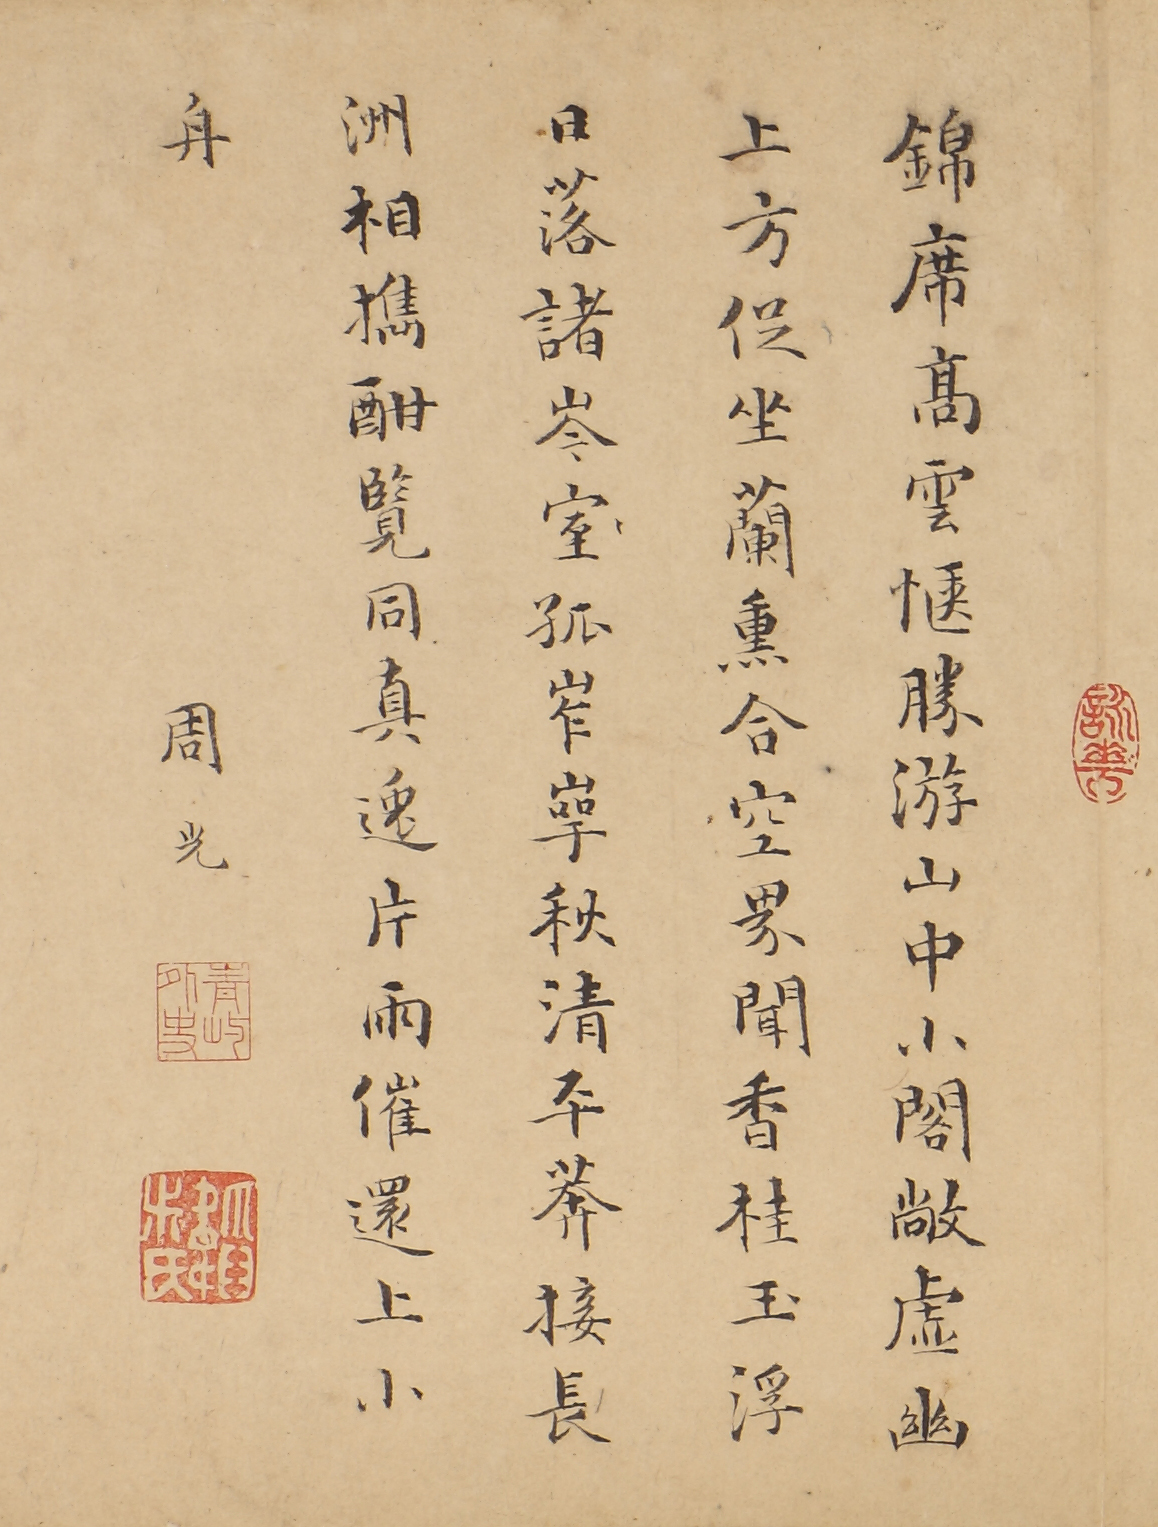 錦席高雲愜勝游山中小閣敞虛幽
上方促坐蘭熏合空界聞香桂玉浮
日落諸岑室孤崒崿秋清平莽接長
洲相攜酣覽同真逸片雨催還上小
舟
周光